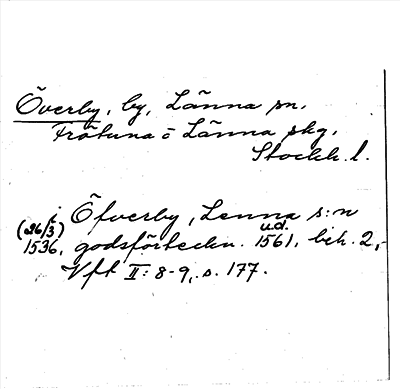 Överby, by, Länna sn,
Frötuna o Länna skg,
Stockh. l.
i Öfverby, Lenna s:n
(26/3) 1536, godsförteckn. u.d. 1561, bih. 2,
Vft II: 8-9, s. 177.